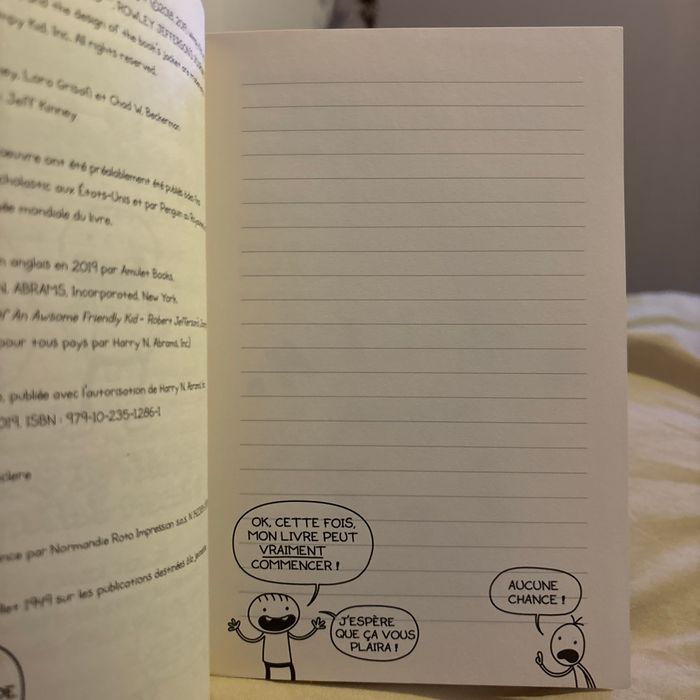 and the design of the book's jacket are
©2018, 2019,
ROWLEY JEFFERSON'S
mpy Kid, Inc. All rights reserved.
ney, Lora Grisafi et Chad W. Beckerman
Jeff Kinney
oeuvre ont été préalablement été publiés
cholastic aux États-Unis et par Penguin au
ée mondiale du livre.
n anglais en 2019 par Amulet Books,
N. ABRAMS, Incorporated, New York.
of An Awsome Friendly Kid - Robert Jefferson's
pour tous pays par Harry N. Abrams, Inc)
, publiée avec l'autorisation de Harry N. Abrams, Inc
019. ISBN : 979-10-235-1286-1
clere
nce par Normandie Roto Impression s.a.s.
llet 1949 sur les publications destinées à la jeunesse
OK, CETTE FOIS,
MON LIVRE PEUT
VRAIMENT
COMMENCER !
J'ESPÈRE
QUE ÇA VOUS
PLAIRA !
AUCUNE
CHANCE !